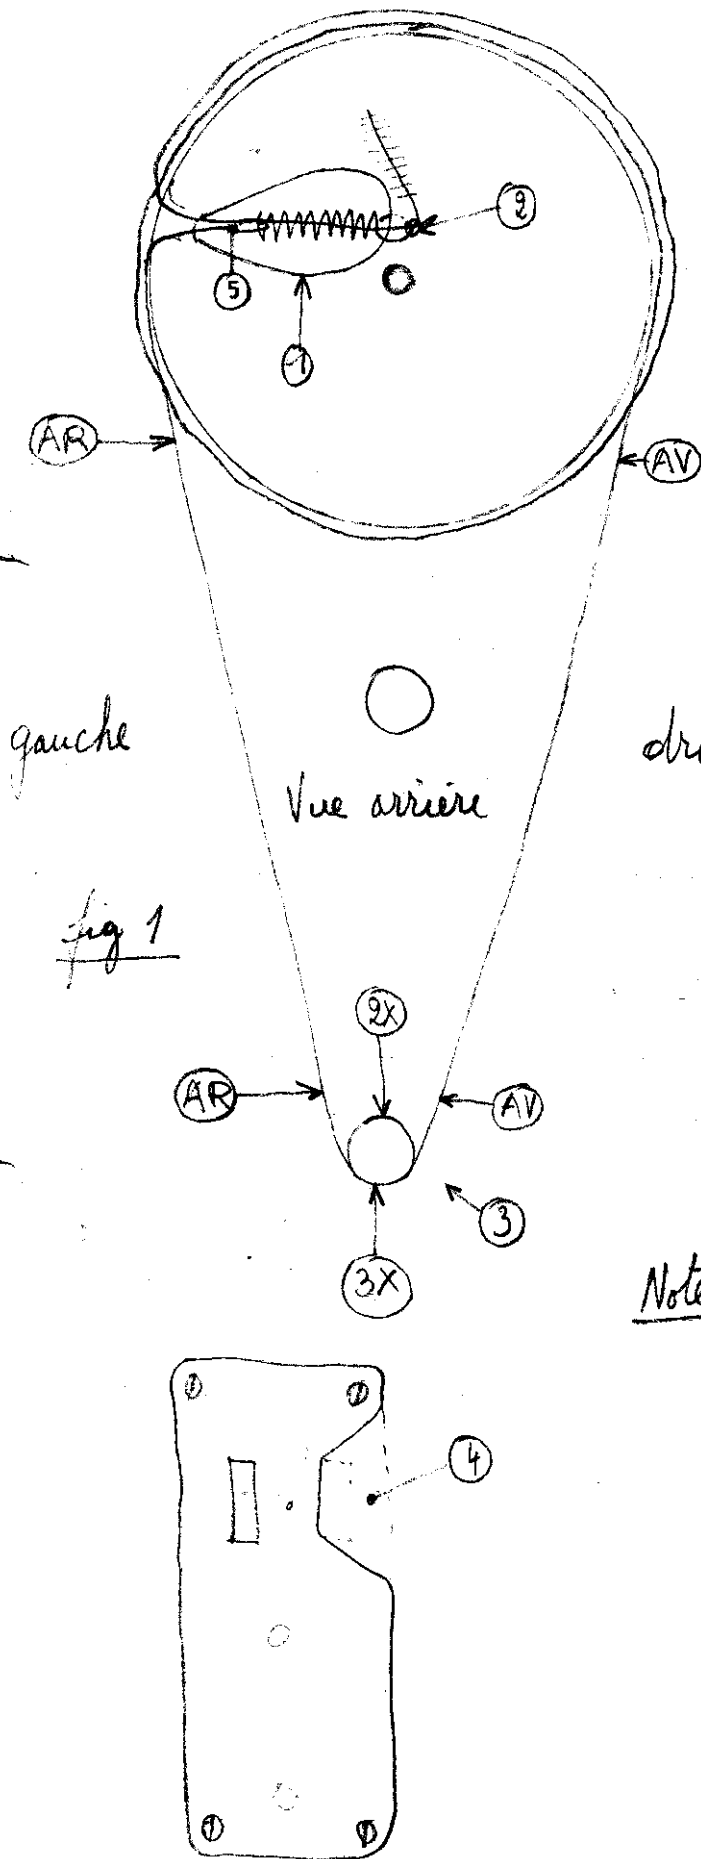 2
5
1
AR
AV
gauche
Vue arrière
fig 1
2X
AR
AV
3
3X
4